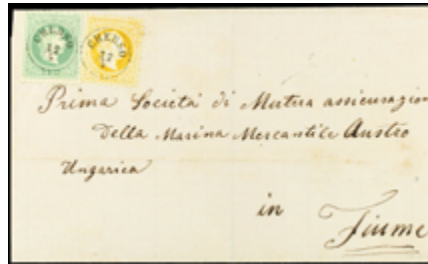 CHERSO
12
CHERSO
12
Prima Società di Mutua assicurazion
Della Marina Mercantile Austro
Ungarica
in
Fiume